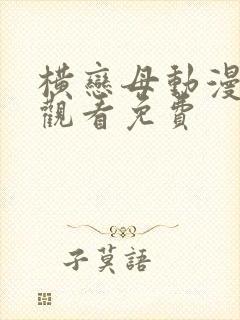 橫戀母動漫
觀看免費
子莫語